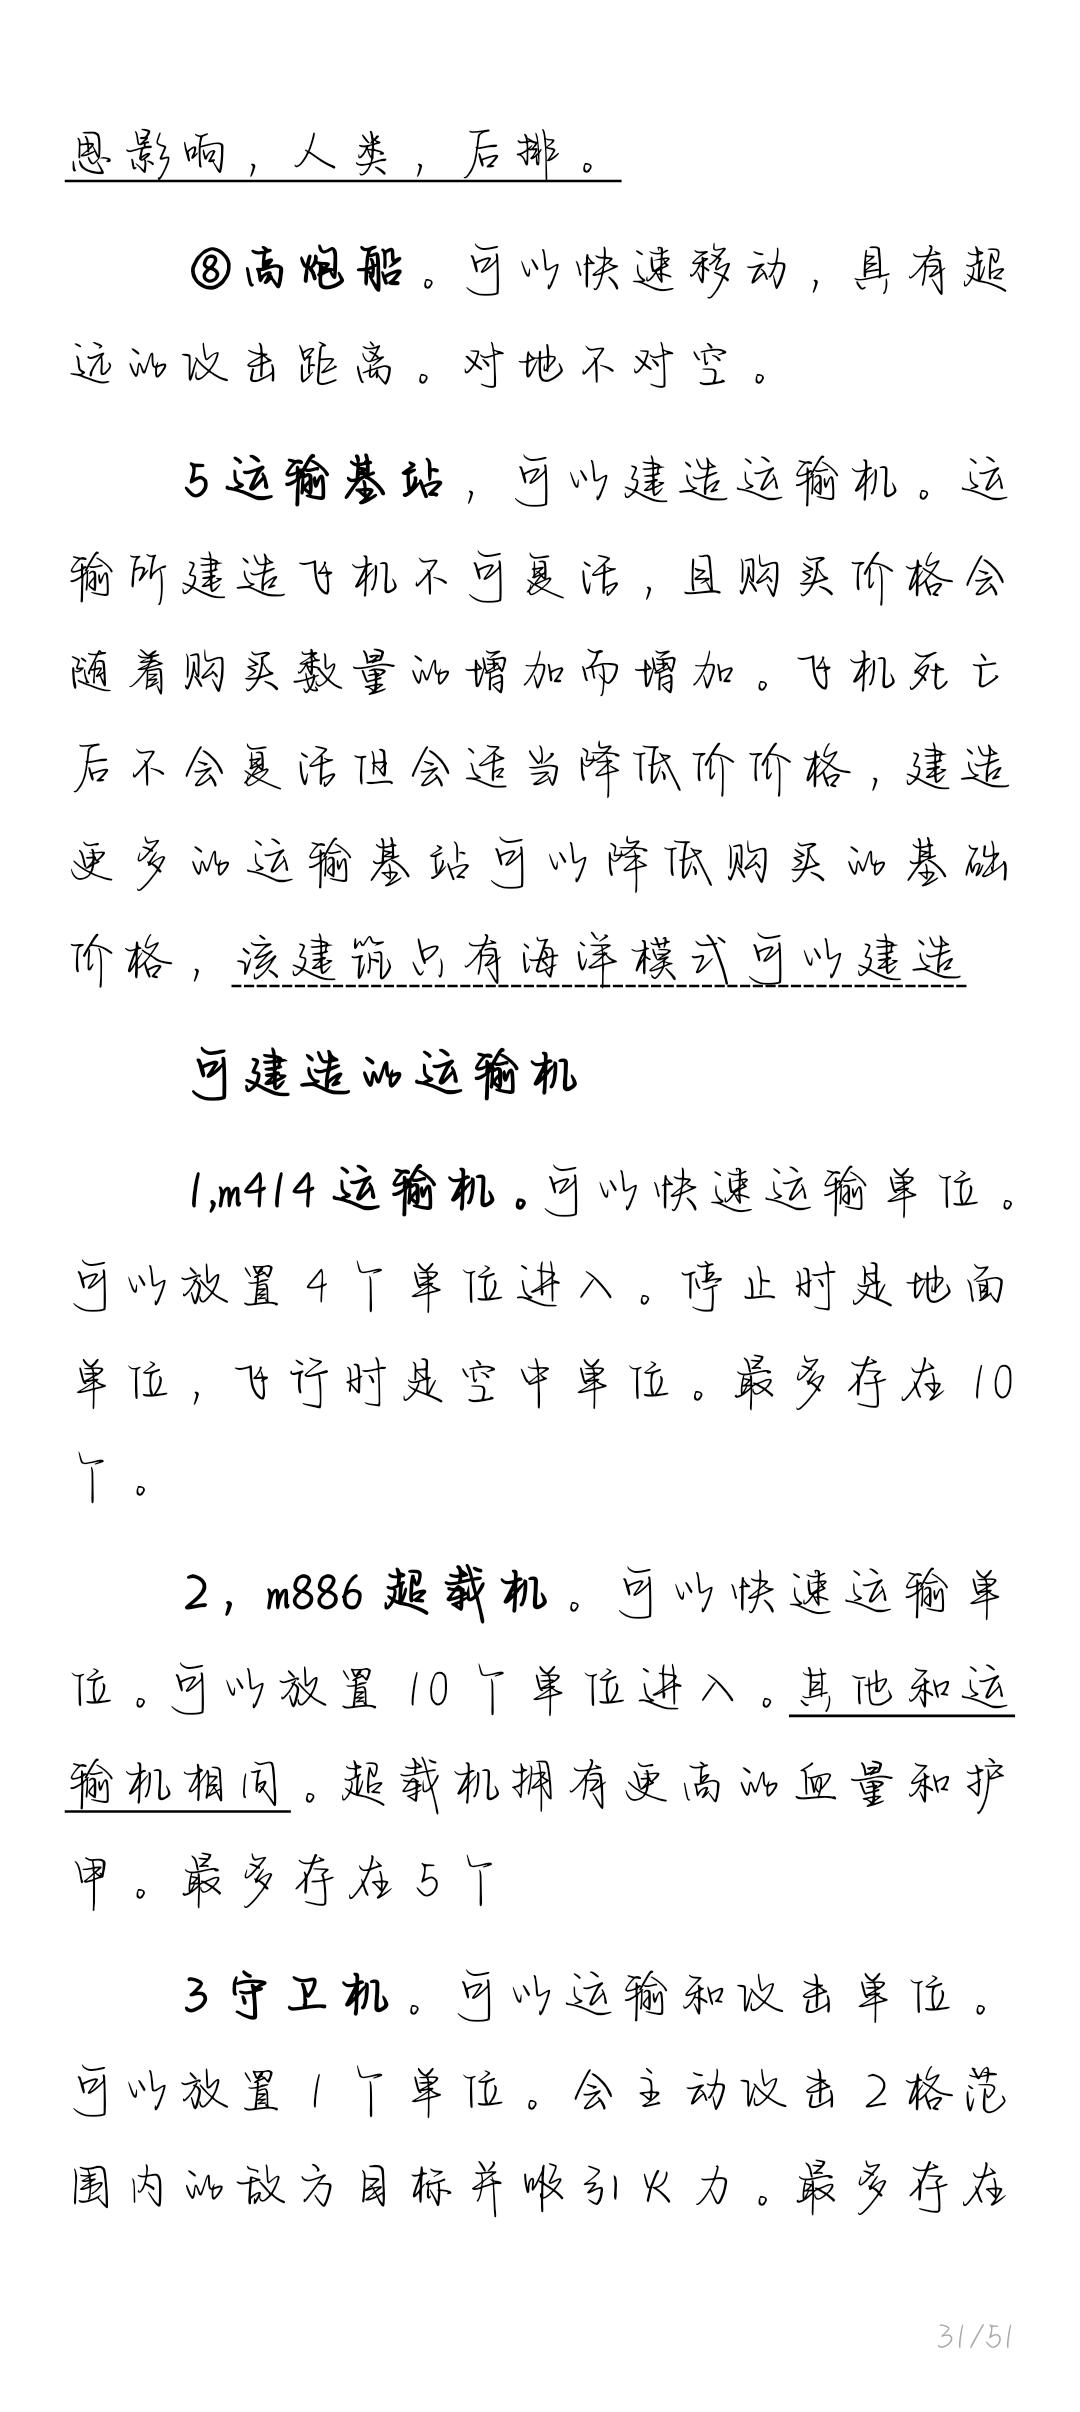 恩影响，人类，后排。
⑧高炮船。可以快速移动，具有超
远的攻击距离。对地不对空。
5运输基站，可以建造运输机。运
输所建造飞机不可复活，且购买价格会
随着购买数量的增加而增加。飞机死亡
后不会复活但会适当降低价价格，建造
更多的运输基站可以降低购买的基础
价格，该建筑只有海洋模式可以建造
可建造的运输机
1,m414运输机。可以快速运输单位。
可以放置4个单位进入。停止时是地面
单位，飞行时是空中单位。最多存在10
个。
2，m886超载机。可以快速运输单
位。可以放置10个单位进入。其他和运
输机相同。超载机拥有更高的血量和护
甲。最多存在5个
3守卫机。可以运输和攻击单位。
可以放置1个单位。会主动攻击2格范
围内的敌方目标并吸引火力。最多存在
31/51